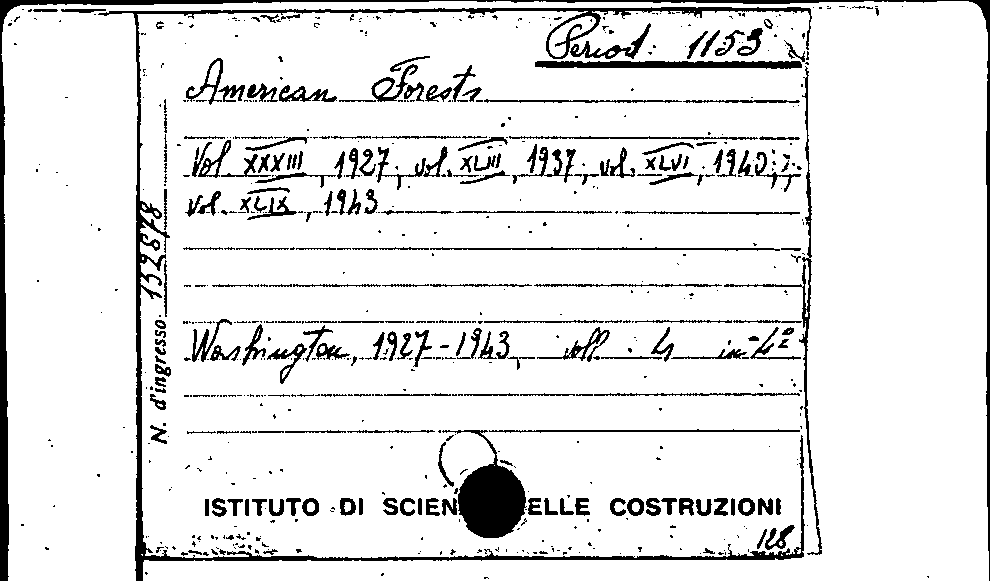 Period. 1153
American Forests
Vol. XXXIII, 1927; vol. XLIII, 1937; vol. XLVI, 1940;
vol. XLIX, 1943.
Washington, 1927-1943, voll. 4 in-4º
N. d'ingresso 132878
ISTITUTO DI SCIEN ELLE COSTRUZIONI
128